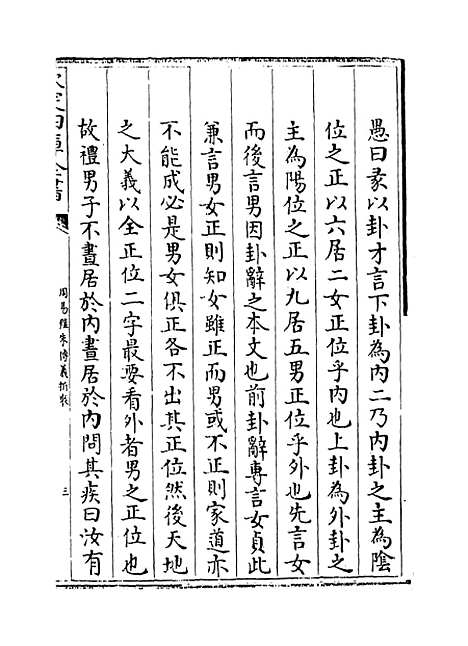 愚曰彖以卦才言下卦為內二乃內卦之主為陰
位之正以六居二女正位乎內也上卦為外卦之
主為陽位之正以九居五男正位乎外也先言女
而後言男因卦辭之本文也前卦辭專言女貞此
兼言男女正則知女雖正而男或不正則家道亦
不能成必是男女俱正各不出其正位然後天地
之大義以全正位二字最要看外者男之正位也
故禮男子不晝居於內晝居於內問其疾曰汝有
欽定四庫全書
周易經朱傳義折衷
三